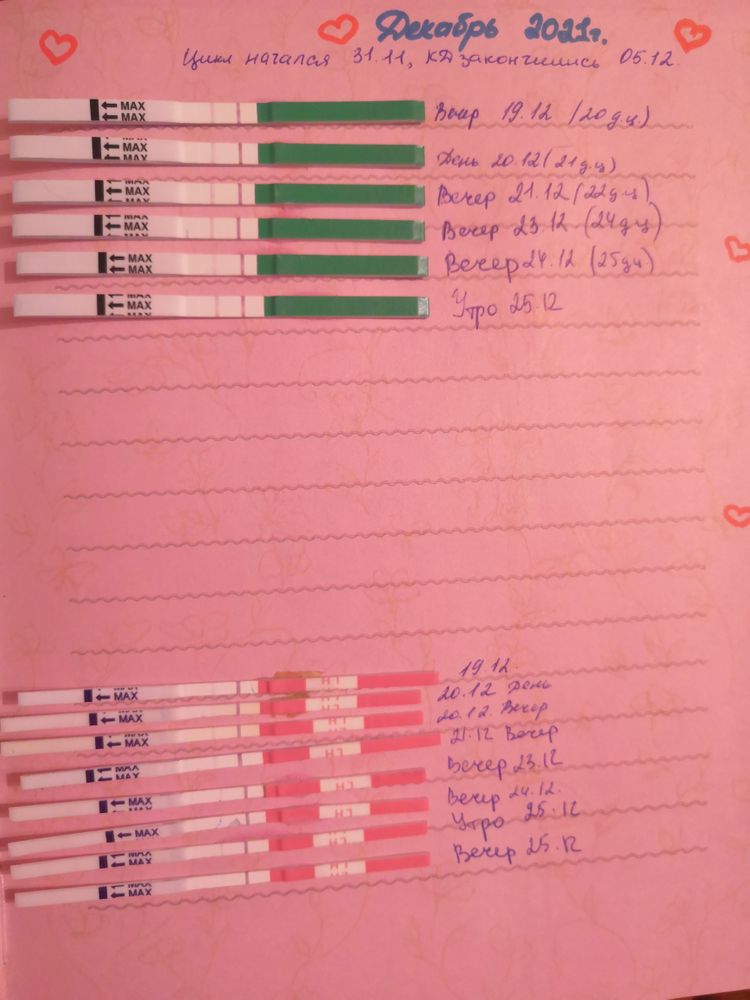 Декабрь 2021г.
Цикл начался 31.11, КД закончились 05.12.
MAX
MAX
Вечер 19.12 (20 д.ц)
MAX
MAX
MAX
День 20.12 (21 д.ц)
MAX
MAX
MAX
Вечер 21.12 (22 д.ц)
MAX
MAX
MAX
Вечер 23.12 (24 д.ц)
MAX
MAX
Вечер 24.12 (25 дц)
MAX
MAX
MAX
Утро 25.12
19.12.
MAX
MAX
20.12 День
MAX
20.12. Вечер
MAX
MAX
21.12 Вечер
MAX
MAX
Вечер 23.12
MAX
Вечер 24.12.
MAX
Утро 25.12
MAX
MAX
Вечер 25.12
MAX
MAX